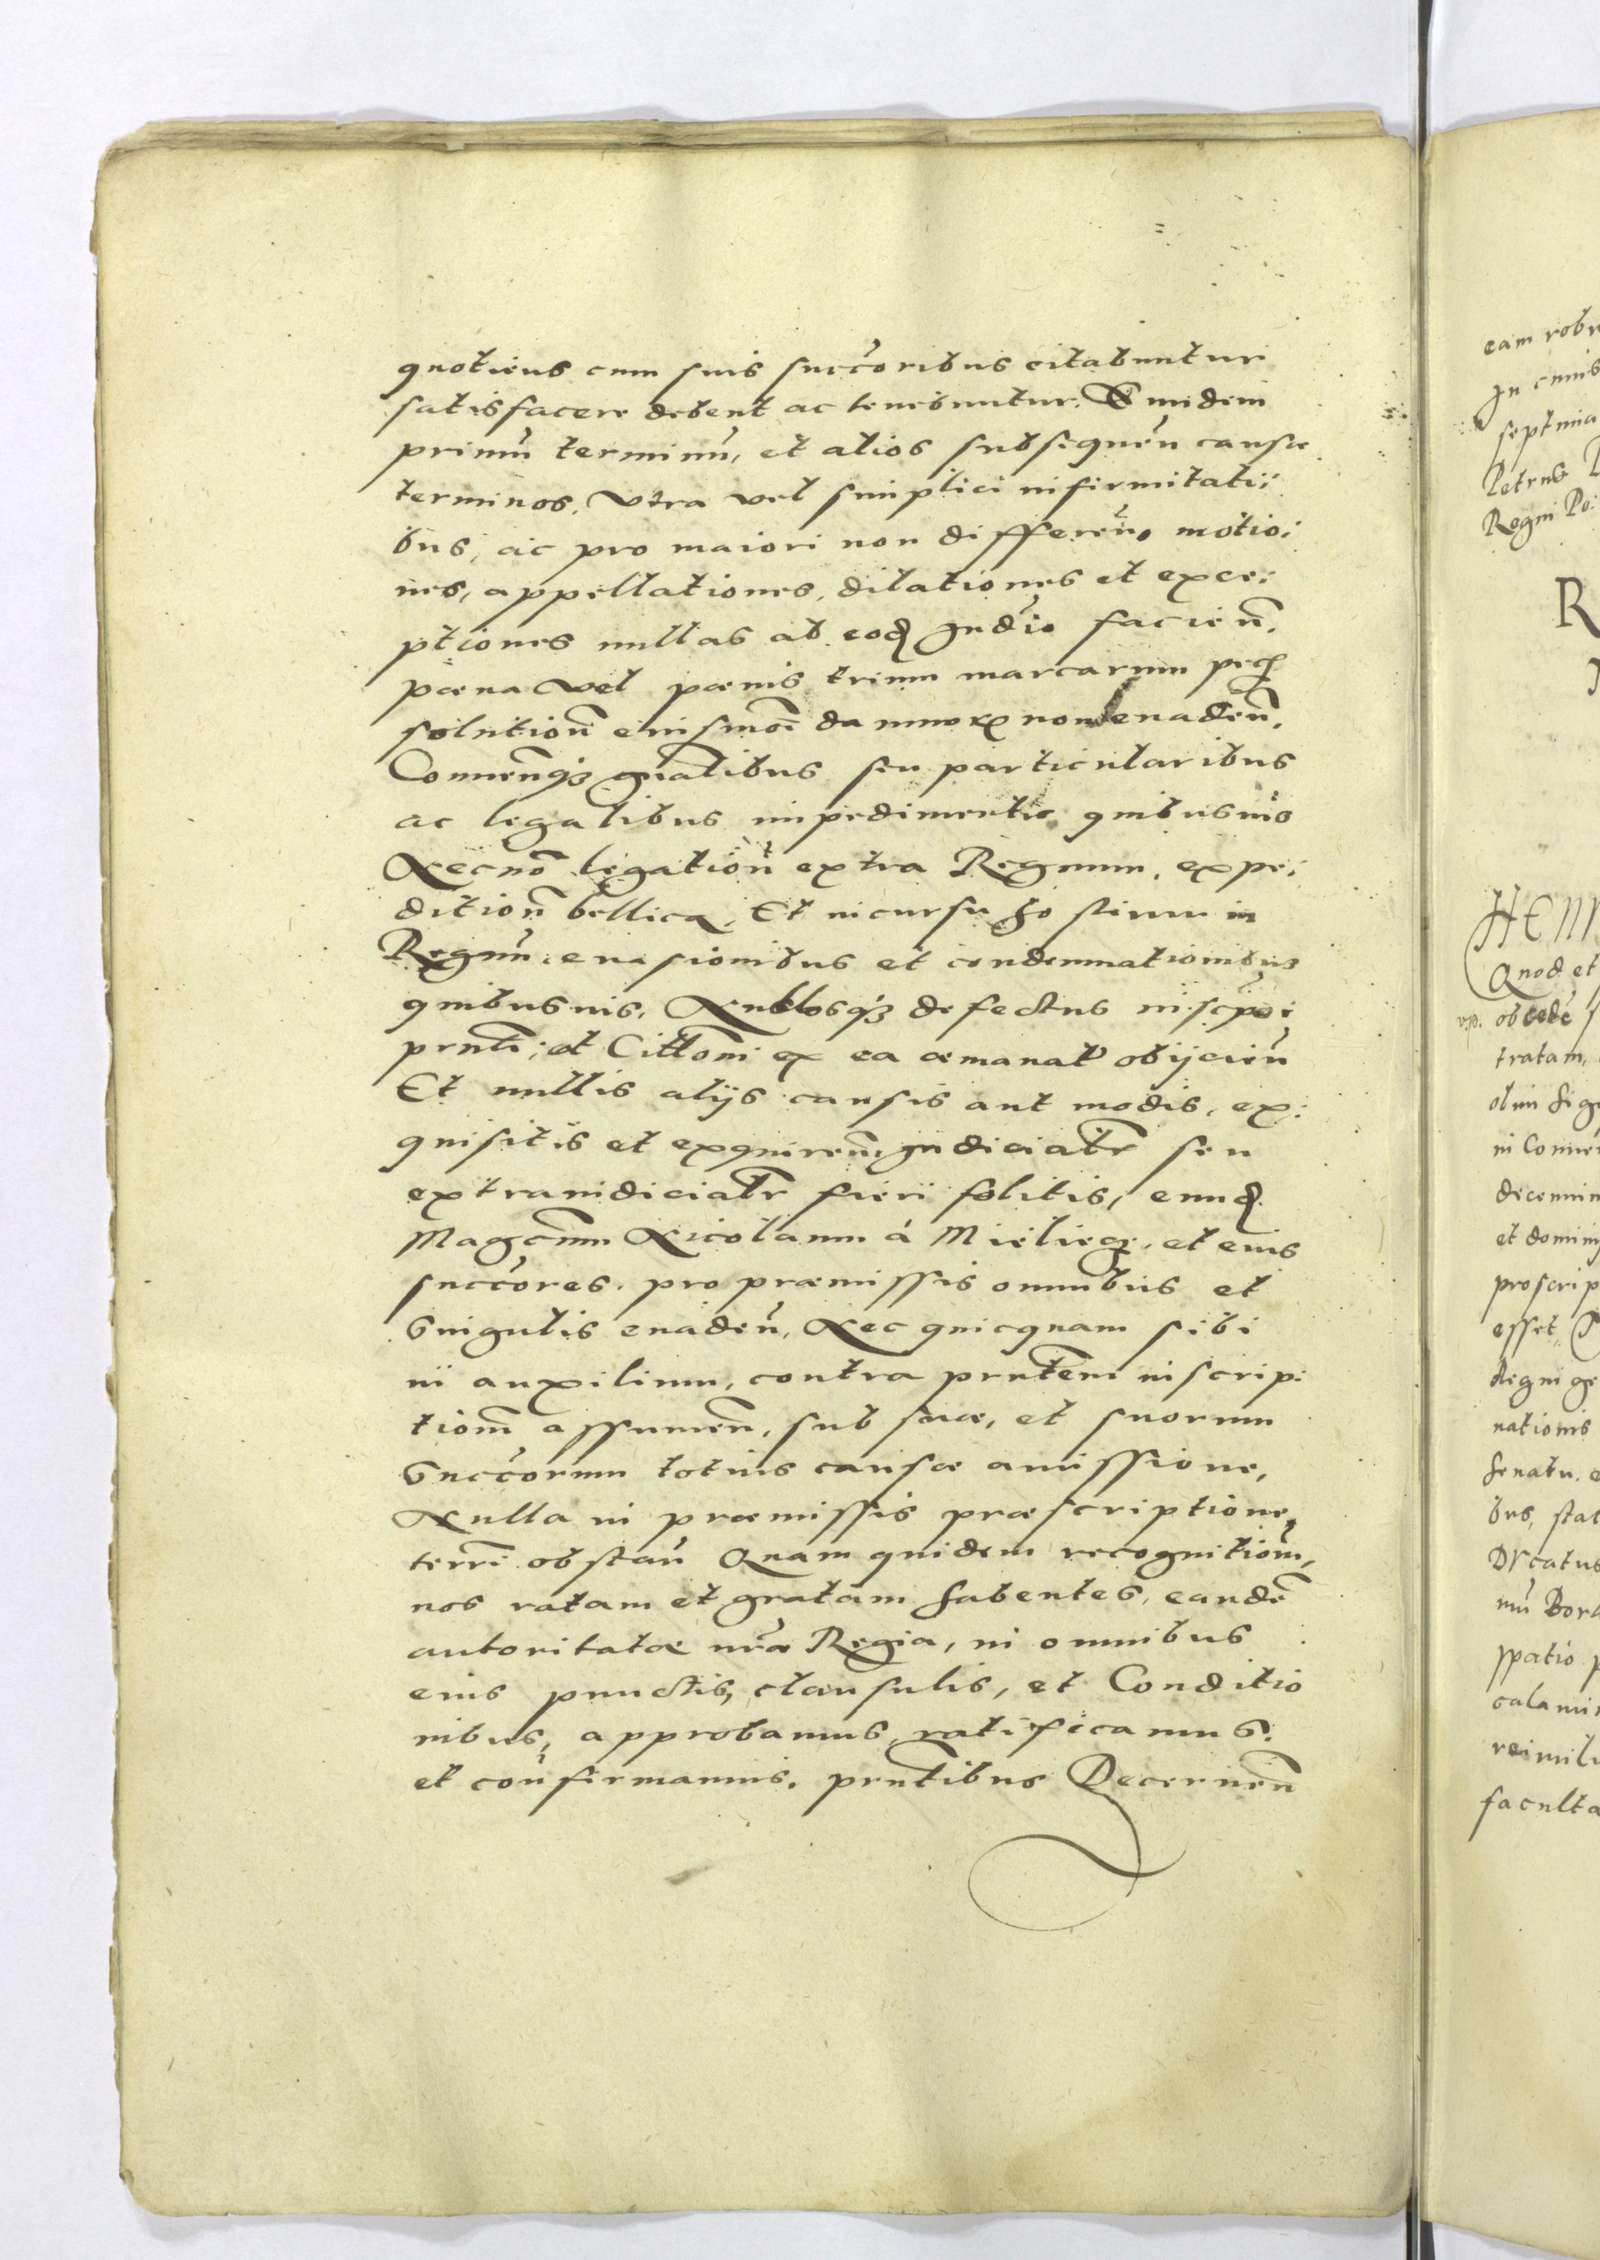 quotiens cum suis succ̃oribus citabuntur
satisfacere debent ac tenebuntur. Eundem
primũ terminũ, et alios subsequeñ causæ
terminos, vera vel simplici infirmitati:
bus, ac pro maiori non differeñ, motio:
nes, appellationes, dilationes et exce:
ptiones nullas ab eoð Iudĩo facieñ.
pæna vel pænis trium marcarum
solutioñ eiusmõi damnorꝝ non euadeñ.
Conueñqȝ gñalibus seu particularibus
ac legalibus impedimentis quibusuis
Necnõ legatioñ extra Regnum, expe:
ditioñ bellica, Et incursu hostium in
Regnũ euasionibus et condemnationibus
quibusuis, Nullosqȝ defectus inscp̃oi
prnti; et Citt̃oni ex ea æmanat̃ obijcieñ
Et nullis alijs causis aut modis, ex:
quisitis et exquireñ Iudicialr̃ seu
extraiudicialr̃ fieri solitis, eunð
Magcũm Nicolaum á Mieliecz, et eius
succ̃ores, pro præmissis omnibus et
Singulis euadeñ, Nec quicquam sibi
in auxilium, contra prnt̃em inscrip:
tiom̃ assumeñ, sub suæ, et suorum
Succ̃orum totius causæ amissione,
Nulla in præmissis præscriptione
terr̃i obstañ Quam quidem recognitiom̃,
nos ratam et gratam habentes, eandẽ
autoritatæ nr̃a Regia, in omnibus
eius punctis, clausulis, et Conditio
nibus, approbamus, ratificamus.
et confirmamus, prntĩbus Decerneñ
eam robu
In cuius
septima
Petrus
Regni Po:
R
HENR
Quod et
tratam,
olim Sig
in Conuen
decenim
et dominij
proscrip
esset,
Regni ge
nationis
Senatu, e
bus, stat
Ducatus
spatio p
calami
faculta